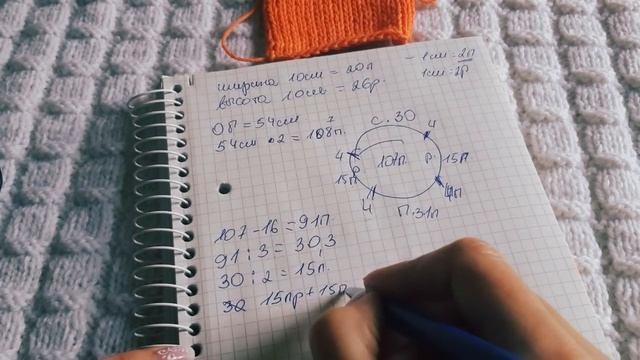 ширина 10см = 20п
высота 10см = 26р.
- 1см = 2п
1см = 2р
ОП = 54см
54см • 2 = 108п.
7
с. 30
4
4
107п
р.
15п
р
15п
4
4п
п.31п
107-16 = 91п.
91 : 3 = 30,3
30 : 2 = 15п.
30 15пр + 15п